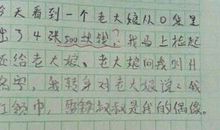 天看到一个老大娘从口袋里
出了4张500块钱?我马上捡起
还给老大娘。老大娘问我叫什
名字,我转身对老大娘说:我
红领巾,雷锋叔叔是我的偶像。